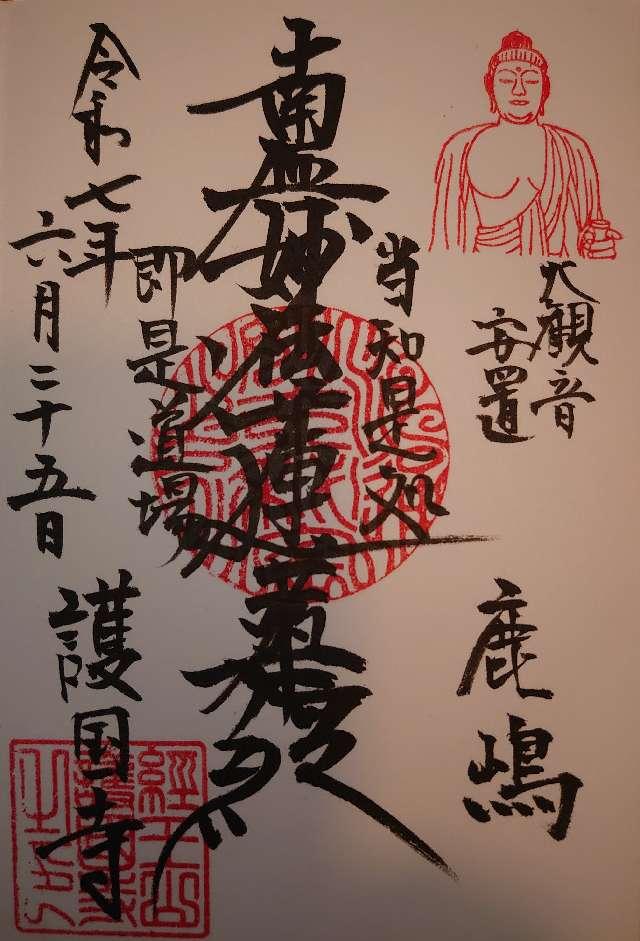 大観音
安置
鹿嶋
当知是処
南無妙法蓮華経
即是道場
令和七年
六月二十五日
護国寺